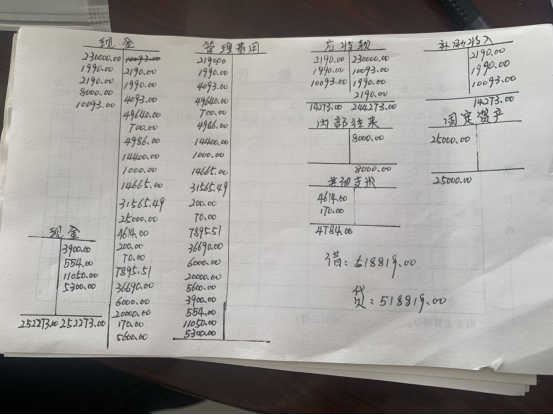 现金
230000.00 10093.00
1990.00 2190.00
2190.00 1990.00
8000.00 4093.00
10093.00 49640.00
700.00
4986.00
14400.00
1000.00
14665.00
31565.49
25000.00
4614.00
200.00
70.00
7895.51
36690.00
6000.00
20000.00
170.00
5600.00
现金
3900.00
554.00
11050.00
5300.00
252273.00 252273.00
管理费用
2190.00
1990.00
4093.00
49640.00
700.00
4986.00
14400.00
1000.00
14665.00
31565.49
200.00
70.00
7895.51
36690.00
6000.00
20000.00
5600.00
3900.00
554.00
11050.00
5300.00
应收款
2190.00 230000.00
1990.00 10093.00
10093.00 1990.00
2190.00
14273.00 244273.00
内部往来
8000.00
8000.00
4614.00
170.00
4784.00
补助收入
2190.00
1990.00
10093.00
14273.00
固定资产
25000.00
25000.00
借：518819.00
贷：518819.00